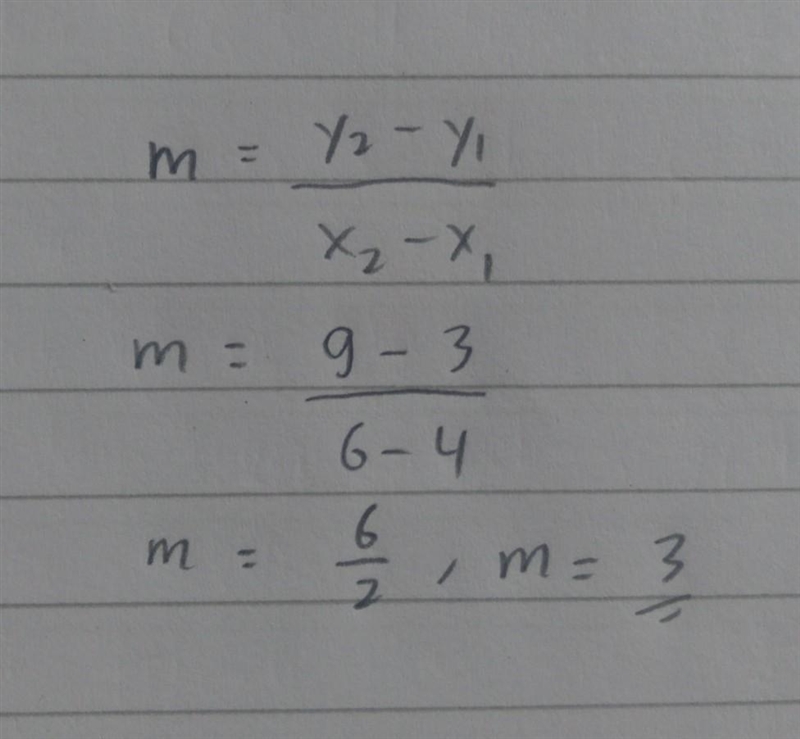 m = y₂ - y₁ / x₂ - x₁
m = 9 - 3 / 6 - 4
m = 6/2 , m = 3